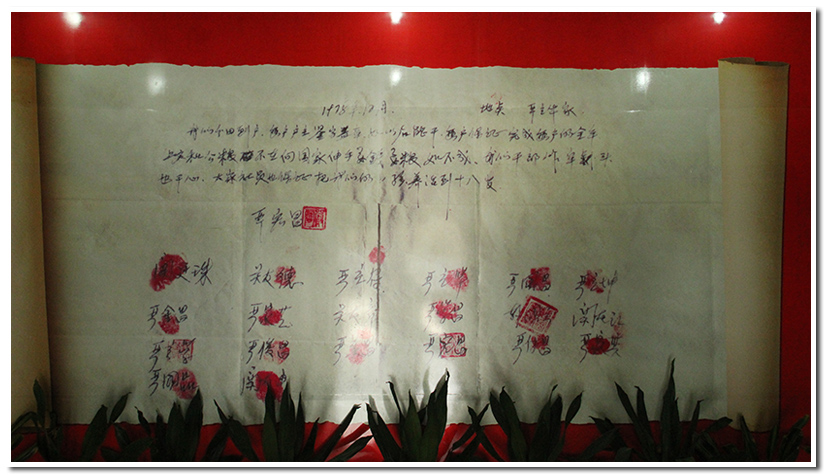 1978.12月. 地点 严立华家
我们分田到户,每户户主签字盖章,如以后能干,每户保证完成每户的全年
上交和公粮 不在向国家伸手要钱要粮,如不成,我们干部作牢杀头
也干心,大家社员也保证把我们的小孩养活到十八岁
严宏昌
关廷珠 关友德 严立符 严立华 严国昌 严立坤
严金昌 严家芝 关友章 严学昌 韩国云 关友江
严立学 严俊昌 严美昌 严付昌 严家其
严国品 关友申